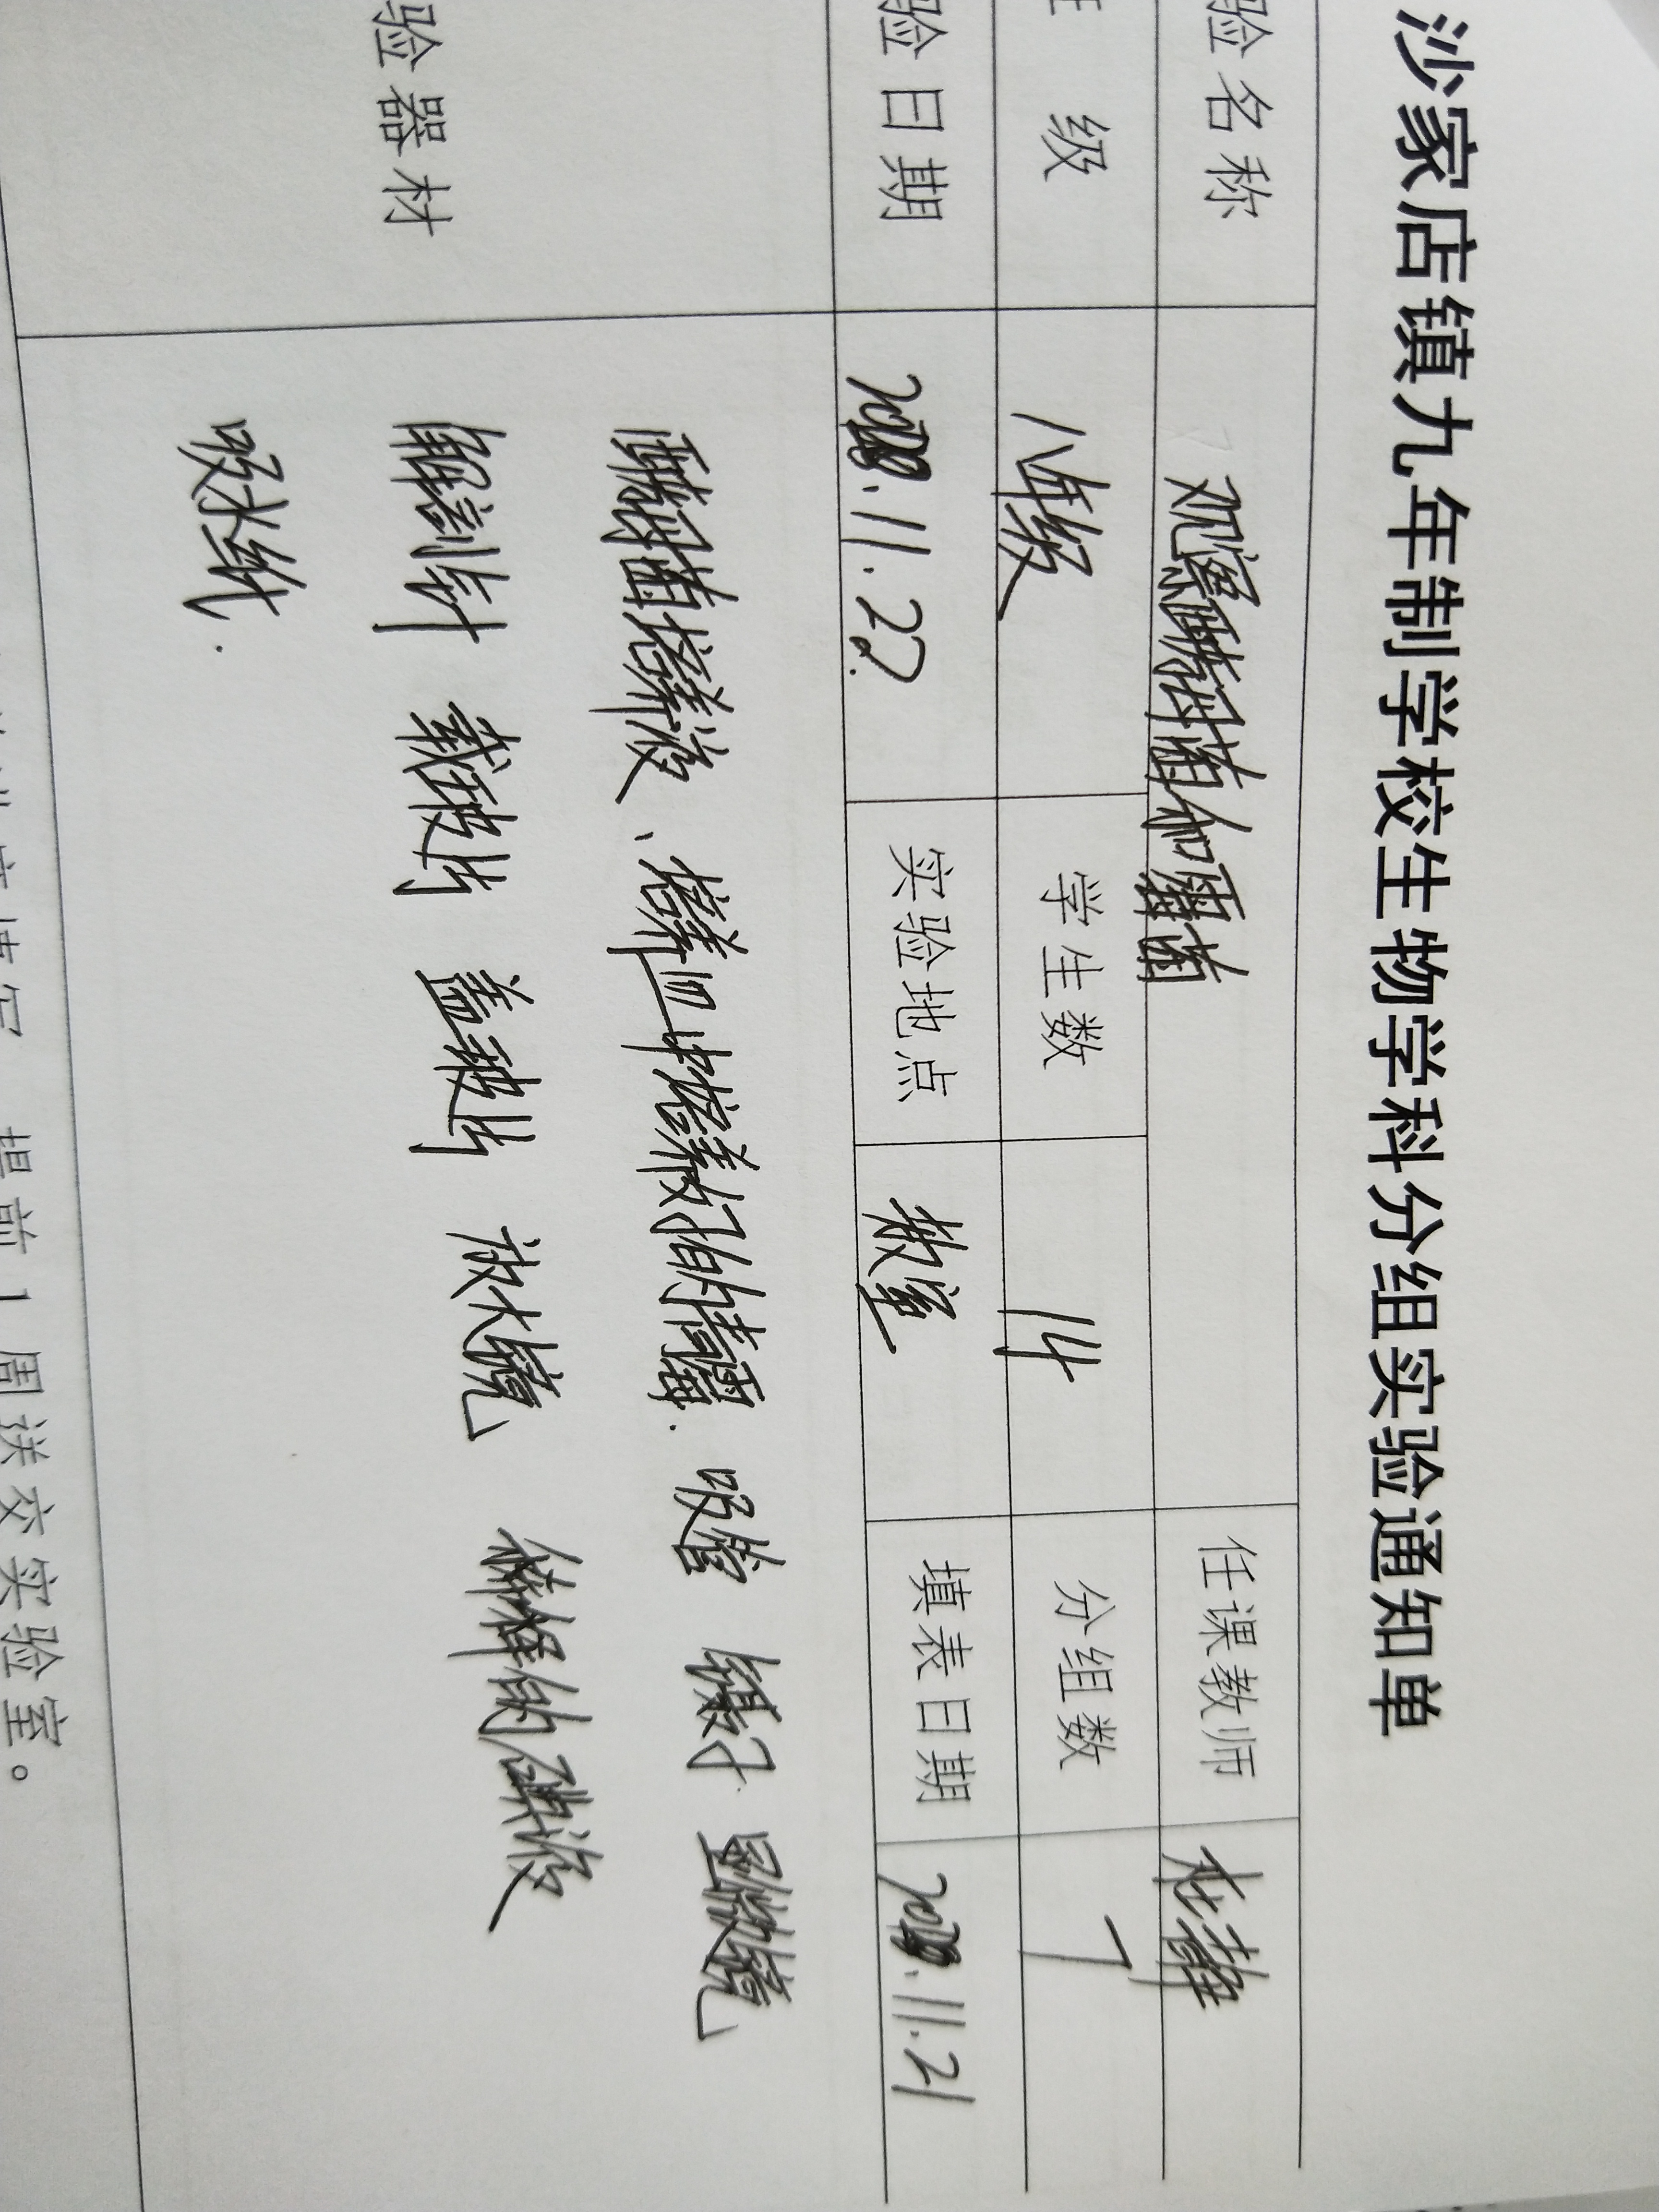 沙家店镇九年制学校生物学科分组实验通知单
验名称 观察酵母菌和霉菌 任课教师 杜静
级 八年级 学生数 14 分组数 7
验日期 .11.22. 实验地点 教室 填表日期 .11.21
验器材
酵母菌培养液、培养皿中培养好的青霉. 吸管 镊子 显微镜
解剖针 载玻片 盖玻片 放大镜 稀释的碘液
吸水纸.
提前1周送交实验室。